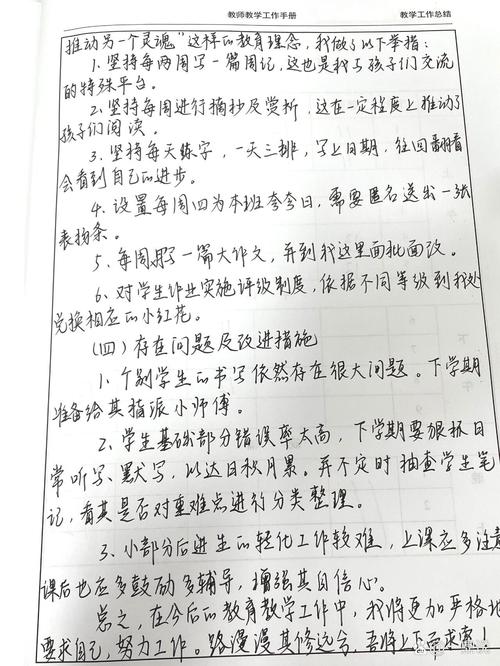 教师教学工作手册 教学工作总结
推动另一个灵魂"这样的教育理念，我做了以下举措：
1. 坚持每两周写一篇周记，这也是我与孩子们交流
的特殊平台。
2. 坚持每周进行摘抄及赏析，这在一定程度上推动了
孩子们阅读。
3. 坚持每天练字，一天三排，写上日期，往回翻看
会看到自己的进步。
4. 设置每周四为本班夸夸日，需要匿名送出一张
表扬条。
5. 每周写一篇大作文，并到我这里面批面改。
6. 对学生作业实施评级制度，依据不同等级到我处
兑换相应的小红花。
(四) 存在问题及改进措施
1. 个别学生的书写依然存在很大问题。下学期
准备给其指派小师傅。
2. 学生基础部分错误率太高，下学期要狠抓日
常听写、默写，以达日积月累。并不定时抽查学生笔
记，看其是否对重难点进行分类整理。
3. 小部分后进生的转化工作较难，上课应多注意
课后也应多鼓励多辅导，增强其自信心。
总之，在今后的教育教学工作中，我将更加严格地
要求自己，努力工作。路漫漫其修远兮，吾将上下而求索！